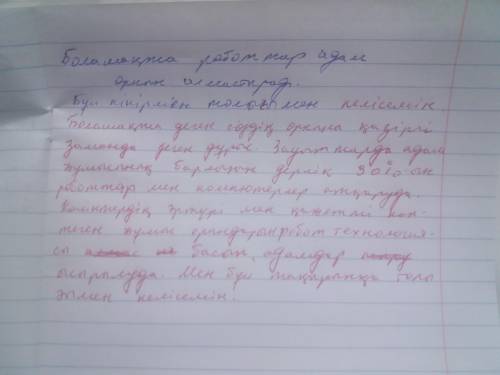 Болашақта роботтар адам
орнын алмастырады.
Бұл пікірмен толығымен келісемін
Болашақта деген сөздің орнына қазіргі
заманда деген дұрыс. Зауыттарда адам
жұмысының барлығын дерлік 90%-ын
роботтар мен компютерлер атқаруда.
мен қажетті көп-
теген жұмыс орындарын робот технология-
сы басып, адамдар
асырылуда. Мен бұл тақырыпқа толы
ғымен келісемін.